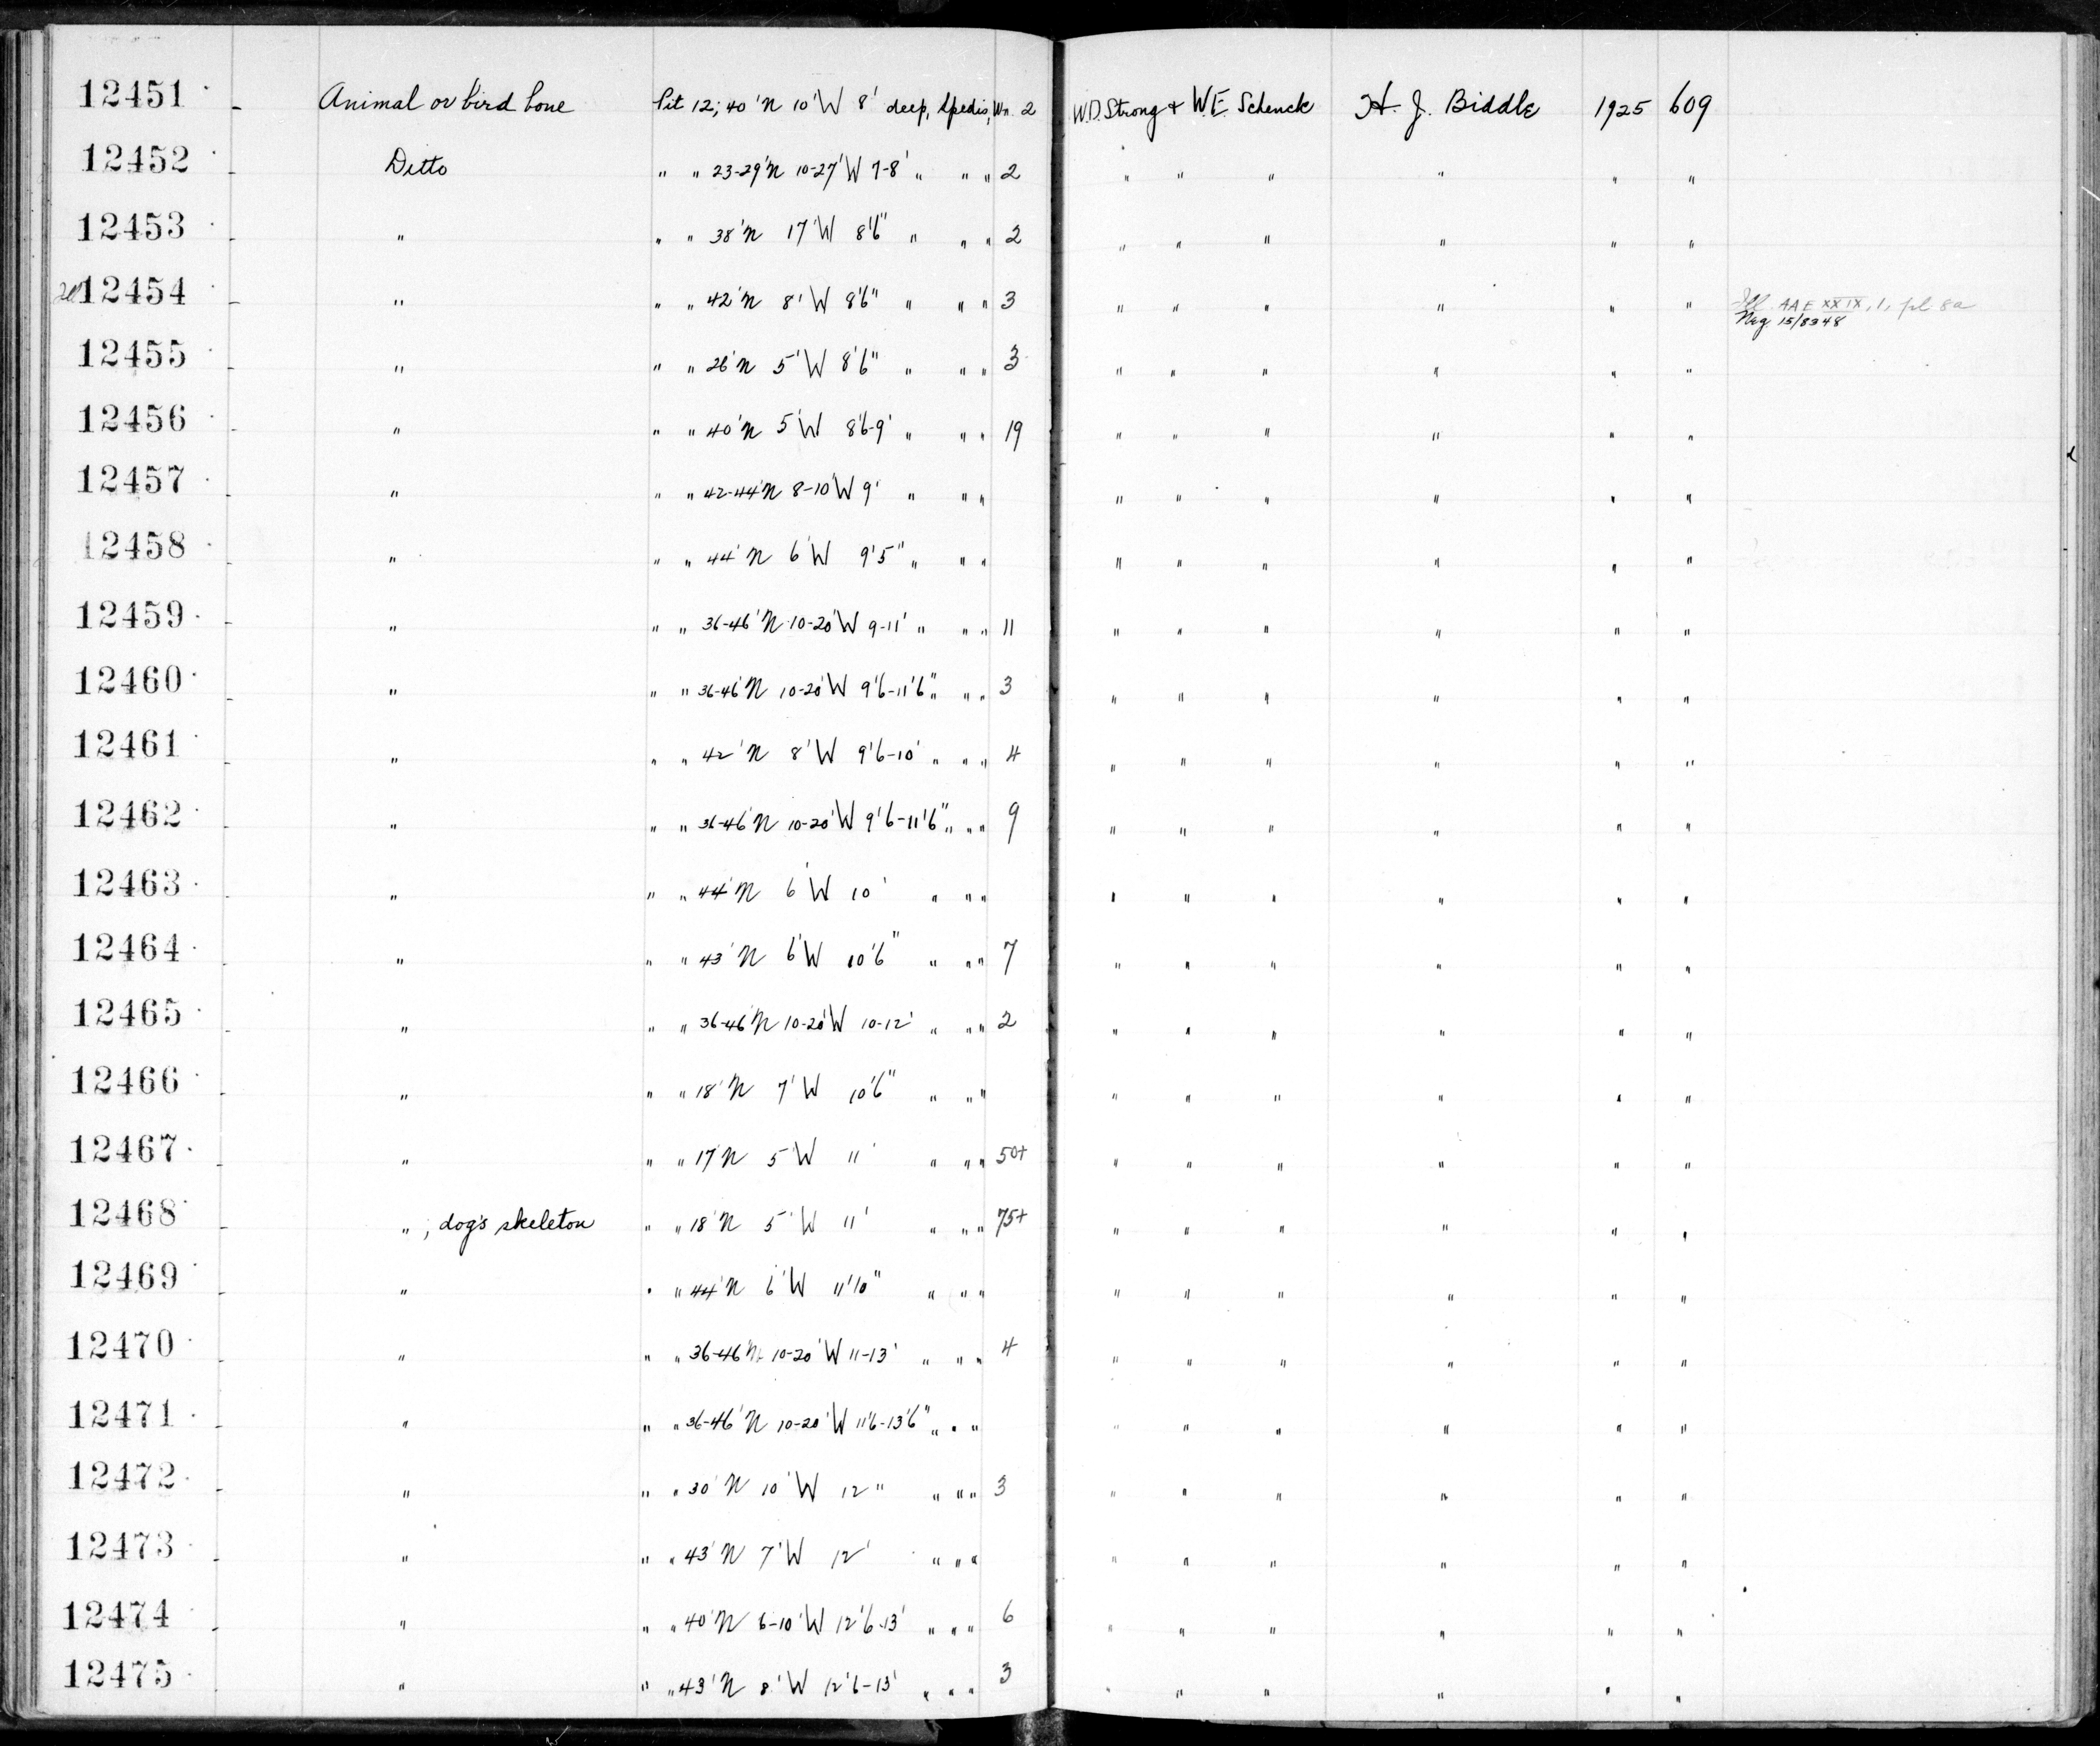 12451 Animal or bird bone Pit 12; 40'N 10'W 8' deep, Spedis, Wn. 2 W.D. Strong & W.E. Schenck H. J. Biddle 1925 609
12452 Ditto " " 23-29'N 10-27'W 7-8' " " " 2 " " " " " "
12453 " " " 38'N 17'W 8'6" " " " 2 " " " " " "
12454 " " " 42'N 8'W 8'6" " " " 3 " " " " " " Ill AAE XXIX, 1, pl 8a
Neg 15/8348
12455 " " " 26'N 5'W 8'6" " " " 3 " " " " " "
12456 " " " 40'N 5'W 8'6-9' " " " 19 " " " " " "
12457 " " " 42-44'N 8-10'W 9' " " " " " " " " "
12458 " " " 44'N 6'W 9'5" " " " " " " " " "
12459 " " " 36-46'N 10-20'W 9-11' " " " 11 " " " " " "
12460 " " " 36-46'N 10-20'W 9'6-11'6" " " " 3 " " " " " "
12461 " " " 42'N 8'W 9'6-10' " " " 4 " " " " " "
12462 " " " 36-46'N 10-20'W 9'6-11'6" " " " 9 " " " " " "
12463 " " " 44'N 6'W 10' " " " " " " " " "
12464 " " " 43'N 6'W 10'6" " " " 7 " " " " " "
12465 " " " 36-46'N 10-20'W 10-12' " " " 2 " " " " " "
12466 " " " 18'N 7'W 10'6" " " " " " " " " "
12467 " " " 17'N 5'W 11' " " " 50+ " " " " " "
12468 " ; dog's skeleton " " 18'N 5'W 11' " " " 75+ " " " " " "
12469 " " " 44'N 6'W 11'10" " " " " " " " " "
12470 " " " 36-46'N 10-20'W 11-13' " " " 4 " " " " " "
12471 " " " 36-46'N 10-20'W 11'6-13'6" " " " " " " " " "
12472 " " " 30'N 10'W 12" " " " 3 " " " " " "
12473 " " " 43'N 7'W 12' " " " " " " " " "
12474 " " " 40'N 6-10'W 12'6-13' " " " 6 " " " " " "
12475 " " " 43'N 8'W 12'6-13' " " " 3 " " " " " "